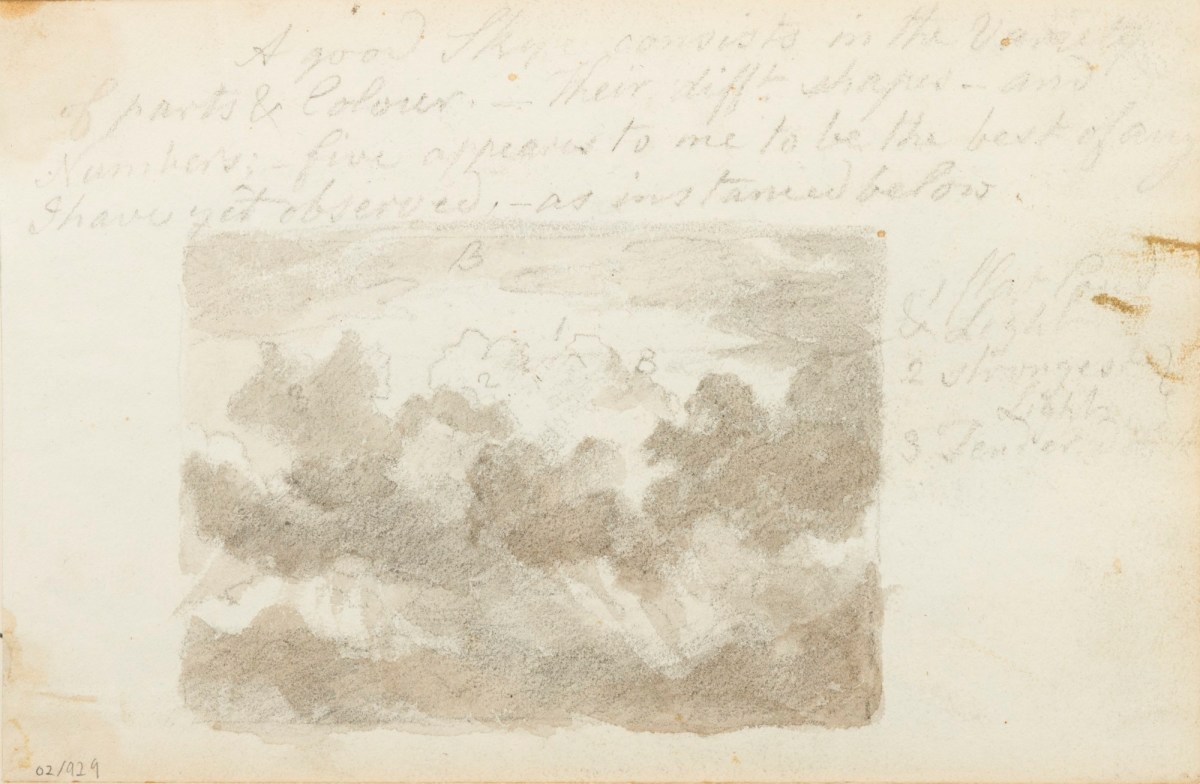 A good Skye consists in the Variety
of parts & Colour. — Their difft shapes — and
Numbers; — five appears to me to be the best of any
I have yet observed, — as instanced below.
B
1
B
2
1
& Light
2 strongest
Light
3 Tender
02/929